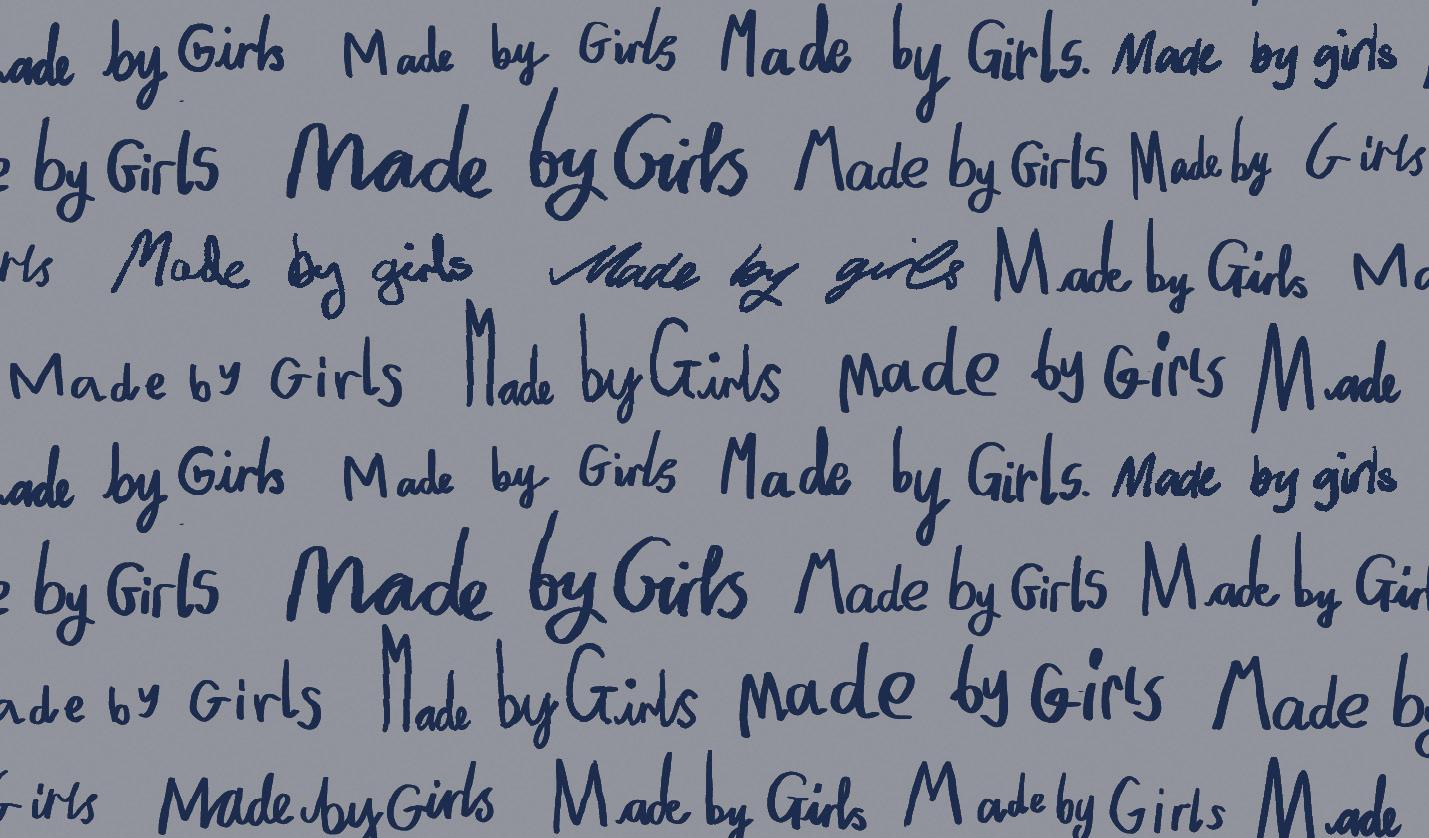 ade by Girls Made by Girls Made by Girls. Made by girls
e by Girls Made by Girls Made by Girls Made by Girls
rls Made by girls Made by girls Made by Girls Ma
Made by Girls Made by Girls Made by Girls Made
ade by Girls Made by Girls Made by Girls. Made by girls
e by Girls Made by Girls Made by Girls Made by Girl
ade by Girls Made by Girls Made by Girls Made by
Girls Made by Girls Made by Girls Made by Girls Made